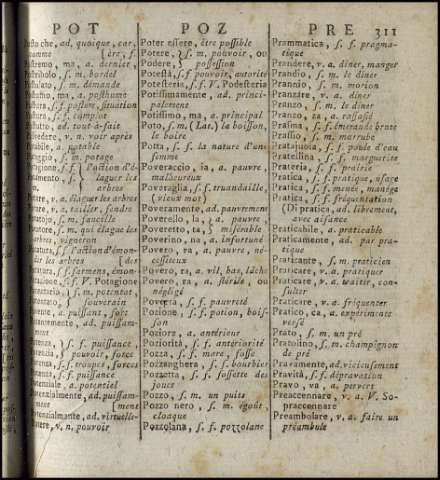 POT
POZ
PRE 311
che, ad. quoique, car,
ma, a. dernier,
s. m. bordel
s. m. demande
ma, a. posthume
s. f. posture, situation
s. f. complot
ad. tout-à-fait
v. n. voir après
a. notable
s. m. potage
v. a. élaguer les arbres
v. a. tailler, fendre
s. m. sarment
s. m. qui élague les
arbres, vigneron
s. f. l'action d'émon-
der les arbres [des
s. f. sarmens, émon-
s. f. V. Potagione
s. m. potentat,
souverain
a. puissant, fort
ad. puissam-
ment
s. f. puissance
pouvoir, force
s. f. troupes, forces
s. f. puissance
a. potentiel
ad. puissam-
[ment
ad. virtuelle-
v. n. pouvoir
Poter essere, être possible
Potere, s. m. pouvoir, ou
Podere, possession
Potestà, s. f. pouvoir, autorité
Potesteria, s. f. V. Podesteria
Potissimamente, ad. princi-
palement
Potissimo, ma, a. principal
Poto, s. m. (Lat.) la boisson,
le boire
Potta, s. f. la nature d'une
femme
Poveraccio, ia, a. pauvre,
malheureux
Poveraglia, s. f. truandaille,
(vieux mot)
Poveramente, ad. pauvrement
Poverello, la, a. pauvre,
Poveretto, ta, misérable
Poverino, na, a. infortuné
Povero, ra, a. pauvre, né-
cessiteux
Povero, ra, a. vil, bas, lâche
Povero, ra, a. stérile, ou
négligé
Povertà, s. f. pauvreté
Pozione, s. f. potion, bois-
son
Poziore, a. antérieur
Poziorità, s. f. antériorité
Pozza, s. f. mare, fosse
Pozzanghera, s. f. bourbier
Pozzetta, s. f. fossette des
joues
Pozzo, s. m. un puits
Pozzo nero, s. m. égoût,
cloaque
Pozzolana, s. f. pozzolane
Prammatica, s. f. pragma-
tique
Prandere, v. a. diner, manger
Prandio, s. m. le diner
Prancio, s. m. morion
Pranzare, v. a. diner
Pranzo, s. m. le diner
Pranzo, za, a. rassasié
Prasma, s. f. émeraude brute
Prassio, s. m. marrube
Pratajuola, s. f. poule d'eau
Pratellina, s. f. marguerite
Prateria, s. f. prairie
Pratica, s. f. pratique, usage
Pratica, s. f. menée, manège
Pratica, s. f. fréquentation
(Di pratica, ad. librement,
avec aisance
Praticabile, a. praticable
Praticamente, ad. par pra-
tique
Praticante, s. m. praticien
Praticare, v. a. pratiquer
Praticare, v. a. traiter, con-
sulter
Praticare, v. a. fréquenter
Pratico, ca, a. expérimenté
versé
Prato, s. m. un pré
Pratolino, s. m. champignon
de pré
Pravamente, ad. vicieusement
Pravità, s. f. dépravation
Pravo, va, a. pervers
Preaccennare, v. a. V. So-
praccennare
Preambolare, v. a. faire un
préambule